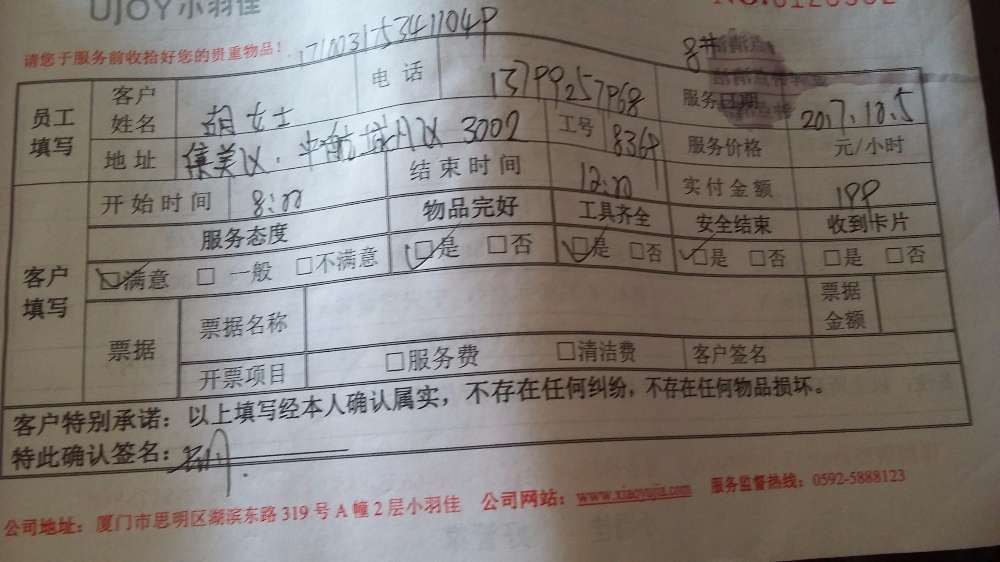 UJOY小羽佳
请您于服务前收拾好您的贵重物品！
8#
员工填写 客户姓名 胡女士 电话 13799257968 服务日期 2017.10.5
地址 集美区. 中航城A区 3002 工号 8364 服务价格 元/小时
开始时间 8:00 结束时间 12:00 实付金额 199
客户填写 服务态度 物品完好 工具齐全 安全结束 收到卡片
☑满意 □一般 □不满意 ☑是 □否 ☑是 □否 ☑是 □否 □是 □否
票据 票据名称 票据金额
开票项目 □服务费 □清洁费 客户签名
客户特别承诺：以上填写经本人确认属实，不存在任何纠纷，不存在任何物品损坏。
特此确认签名：
公司地址：厦门市思明区湖滨东路 319 号 A 幢 2 层小羽佳 公司网站：www.xiaoyujia.com 服务监督热线：0592-5888123